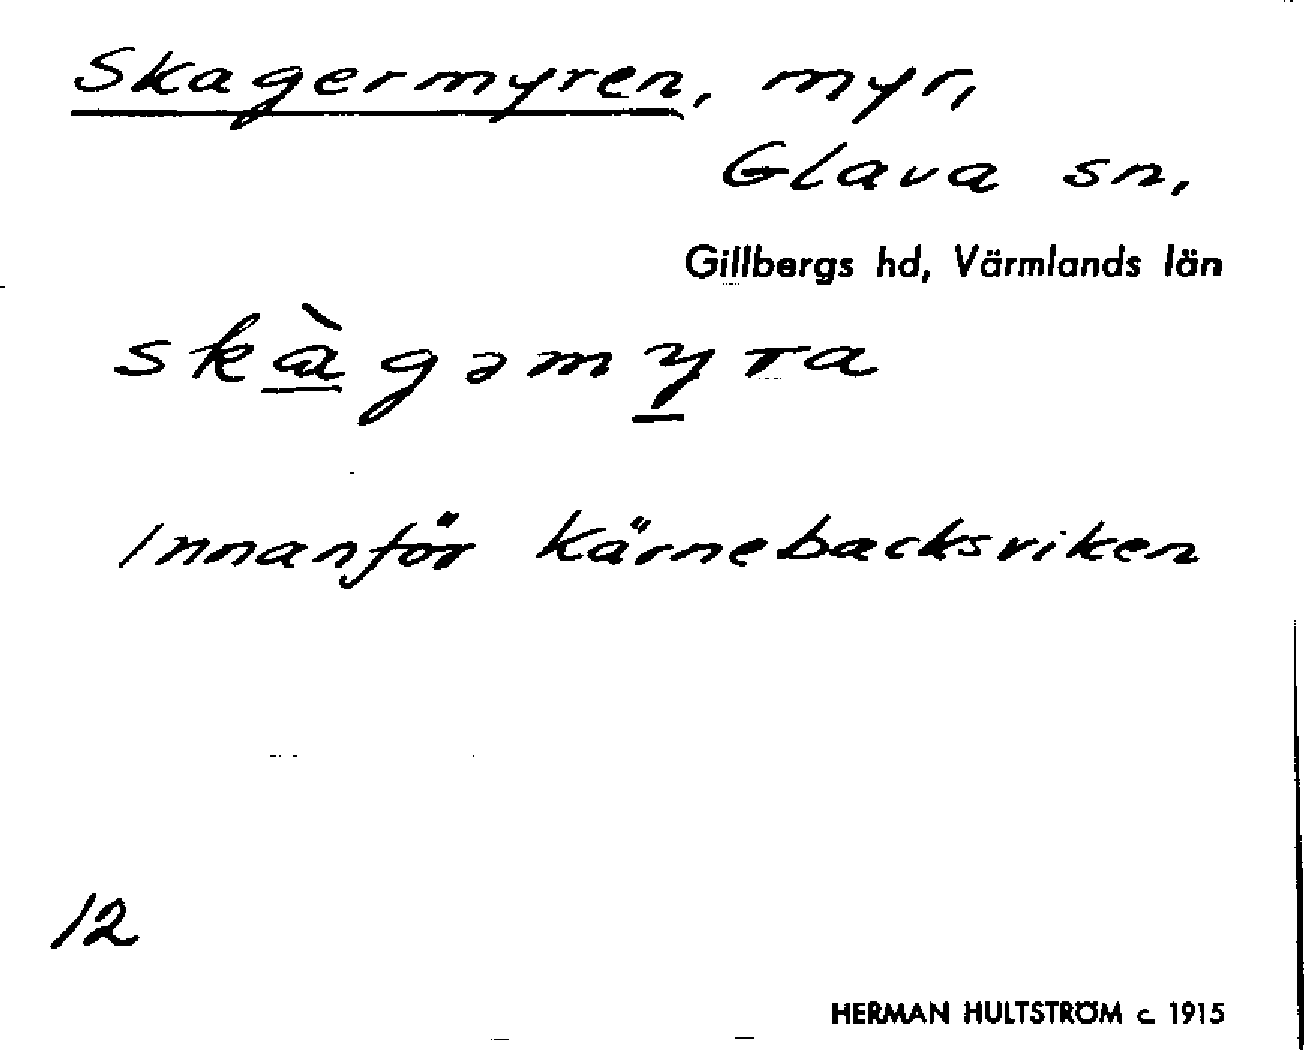 Skagermyren, myr,
Glava sn,
Gillbergs hd, Värmlands län
skàgəmyra
Innanför Kärnebacksviken
12
HERMAN HULTSTRÖM c 1915